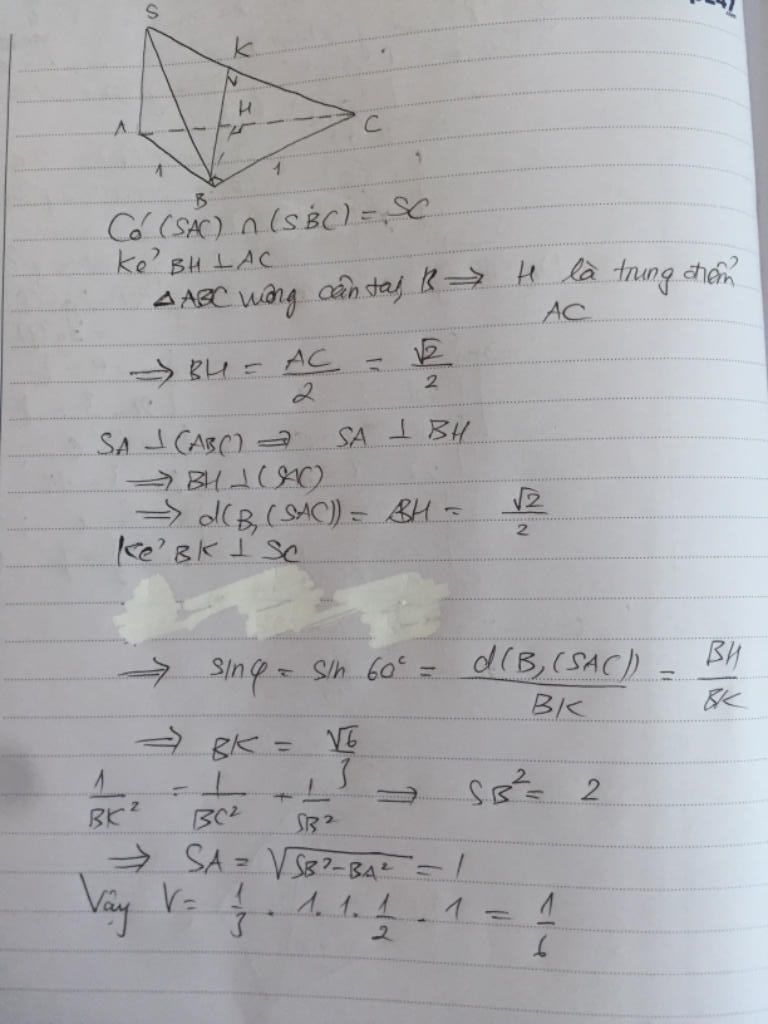 S
K
A H C
1 1
B
Có (SAC) ∩ (SBC) = SC
Kẻ BH ⊥ AC
△ABC vuông cân tại B ⟹ H là trung điểm
AC
⟹ BH = AC/2 = √2/2
SA ⊥ (ABC) ⟹ SA ⊥ BH
⟹ BH ⊥ (SAC)
⟹ d(B, (SAC)) = BH = √2/2
Kẻ BK ⊥ SC
⟹ sinφ = sin 60° = d(B, (SAC))/BK = BH/BK
⟹ BK = √6/3
1/BK² = 1/BC² + 1/SB² ⟹ SB² = 2
⟹ SA = √(SB² - BA²) = 1
Vậy V = 1/3 . 1. 1. 1/2 . 1 = 1/6